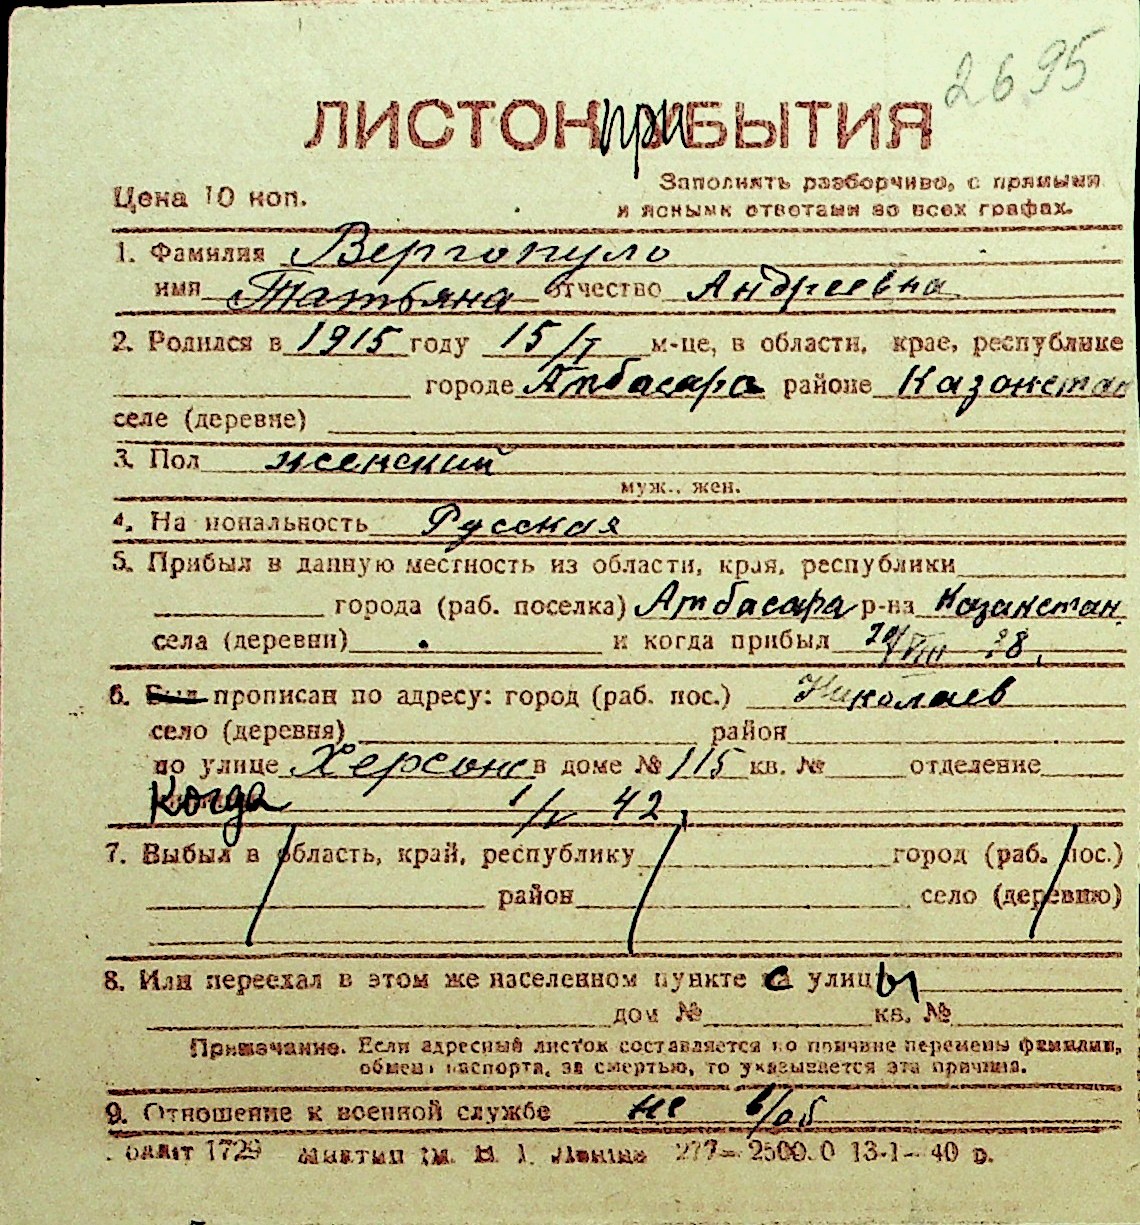 2695
ЛИСТОК прибЫТИЯ
Цена 10 коп.
Заполнять разборчиво, с прямыми
и ясными ответами во всех графах.
1. Фамилия Вергопуло
имя Татьяна отчество Андреевна
2. Родился в 1915 году 15/I м-це, в области, крае, республике
городе Атбасара районе Казакстан
селе (деревне)
3. Пол женский
муж., жен.
4. Национальность Русская
5. Прибыл в данную местность из области, края, республики
города (раб. поселка) Атбасара р-на Казакстан
села (деревни) и когда прибыл VIII 28.
6. Был прописан по адресу: город (раб. пос.) Николаев
село (деревня) район
по улице Херсонс в доме № 115 кв. № отделение
Когда 1/V 42
7. Выбыл в область, край, республику город (раб. пос.)
район село (деревню)
8. Или переехал в этом же населенном пункте с улицы
дом № кв. №
Примечание. Если адресный листок составляется по причине перемены фамилии,
обмена паспорта, за смертью, то указывается эта причина.
9. Отношение к военной службе не в/об
1729 им. В. И. Ленина 277— 2500.0 13-1—40 р.